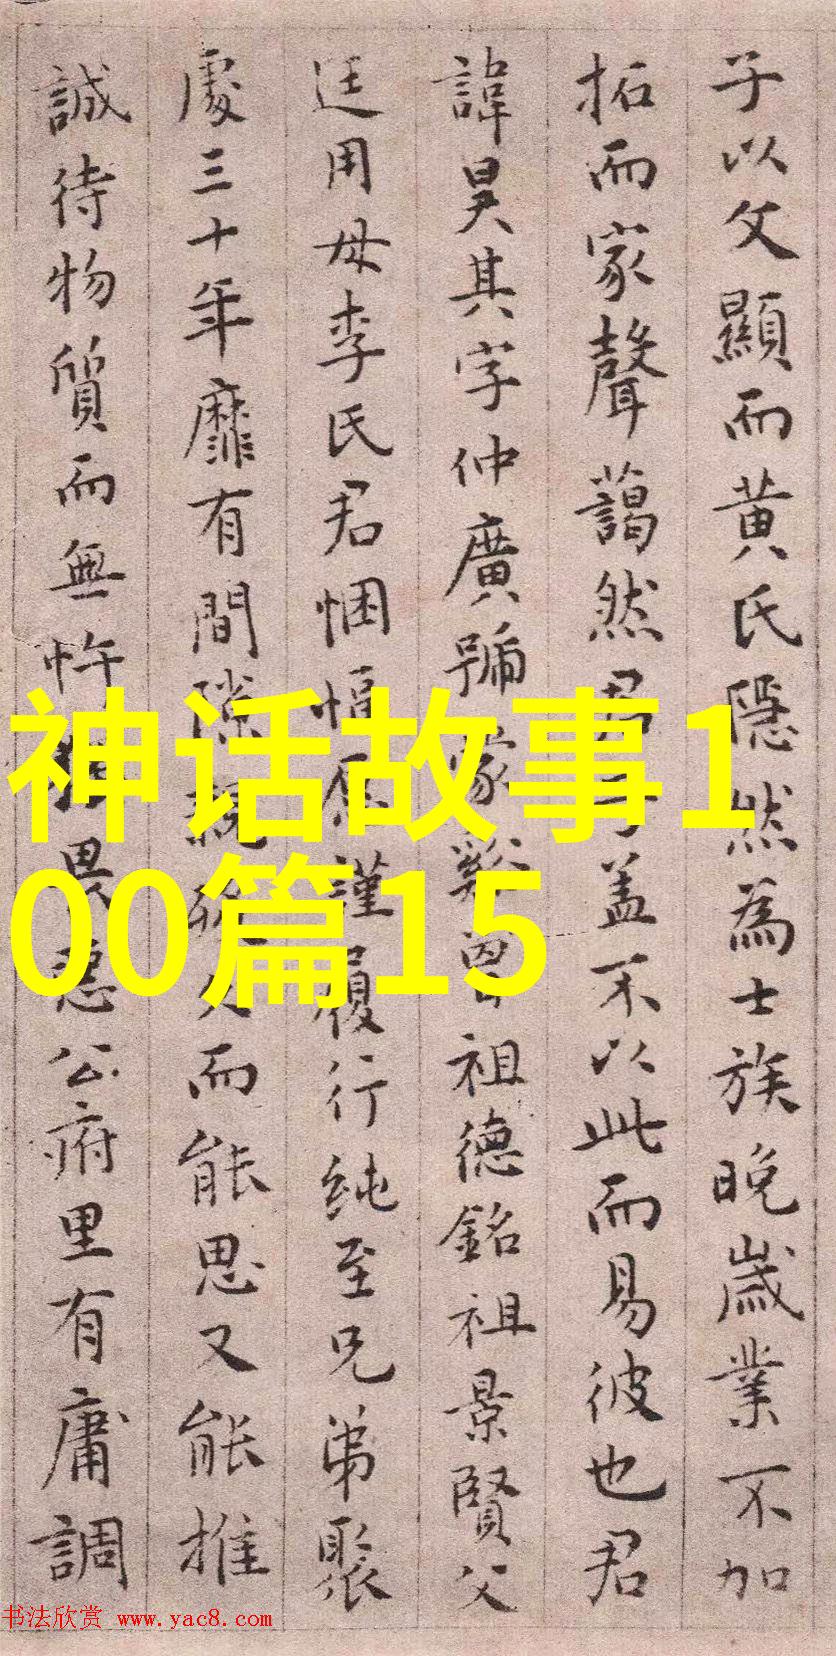 子以父顯而黄氏隱然為士族晚歲業不加
拓而家聲藹然君子盖不以此而易彼也君
諱昊其字仲廣號蒙谿曽祖德銘祖景賢父
廷用母李氏君悃愊愿謹履行純至兄弟聚
處三十年靡有間隙親殁久而能思又能推
誠待物質而無忤畏公府里有庸調
神话故事1
00篇15
书法欣赏 www.yac8.com